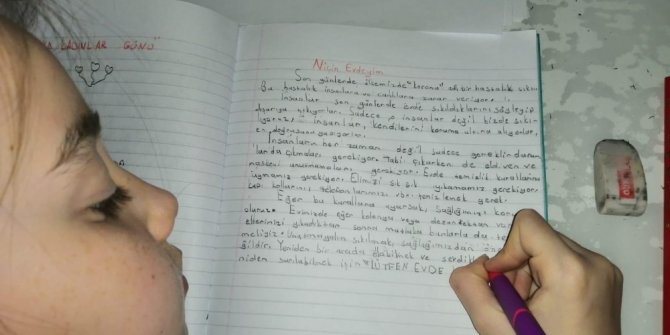 KADINLAR GÜNÜ"
Niçin Evdeyim
Son günlerde ülkemizde "korona" adlı bir hastalık çıktı
Bu hastalık insanlara ve canlılara zarar veriyor.
İnsanlar son günlerde evde sıkıldıklarını söyleyip
dışarıya çıkıyorlar. Sadece o insanlar değil bizde sıkılı-
yoruz. insanlar, kendilerini koruma altına alıyorlar,
en doğrusunu yapıyorlar.
İnsanların her zaman değil sadece gerekli durum
larda çıkmaları gerekiyor. Tabi çıkarken de eldiven ve
maskeyi unutmamaları gerekiyor. Evde temizlik kurallarına
uymamız gerekiyor. Elimizi sık sık yıkamamız gerekiyor
kapı kollarını, telefonlarımızı temizlemek gerek.
Eğer bu kurallara uyarsak, Sağlığımızı
oluruz. Evimizde eğer kolonya veya dezenfektan var
ellerimizi yıkadıktan sonra mutlaka bunlarla da
meliyiz. Unutmayalım sıkılmak, sağlığımızdan
ğildir. Yeniden bir arada olabilmek ve
niden sarılabilmek için LÜTFEN EVDE